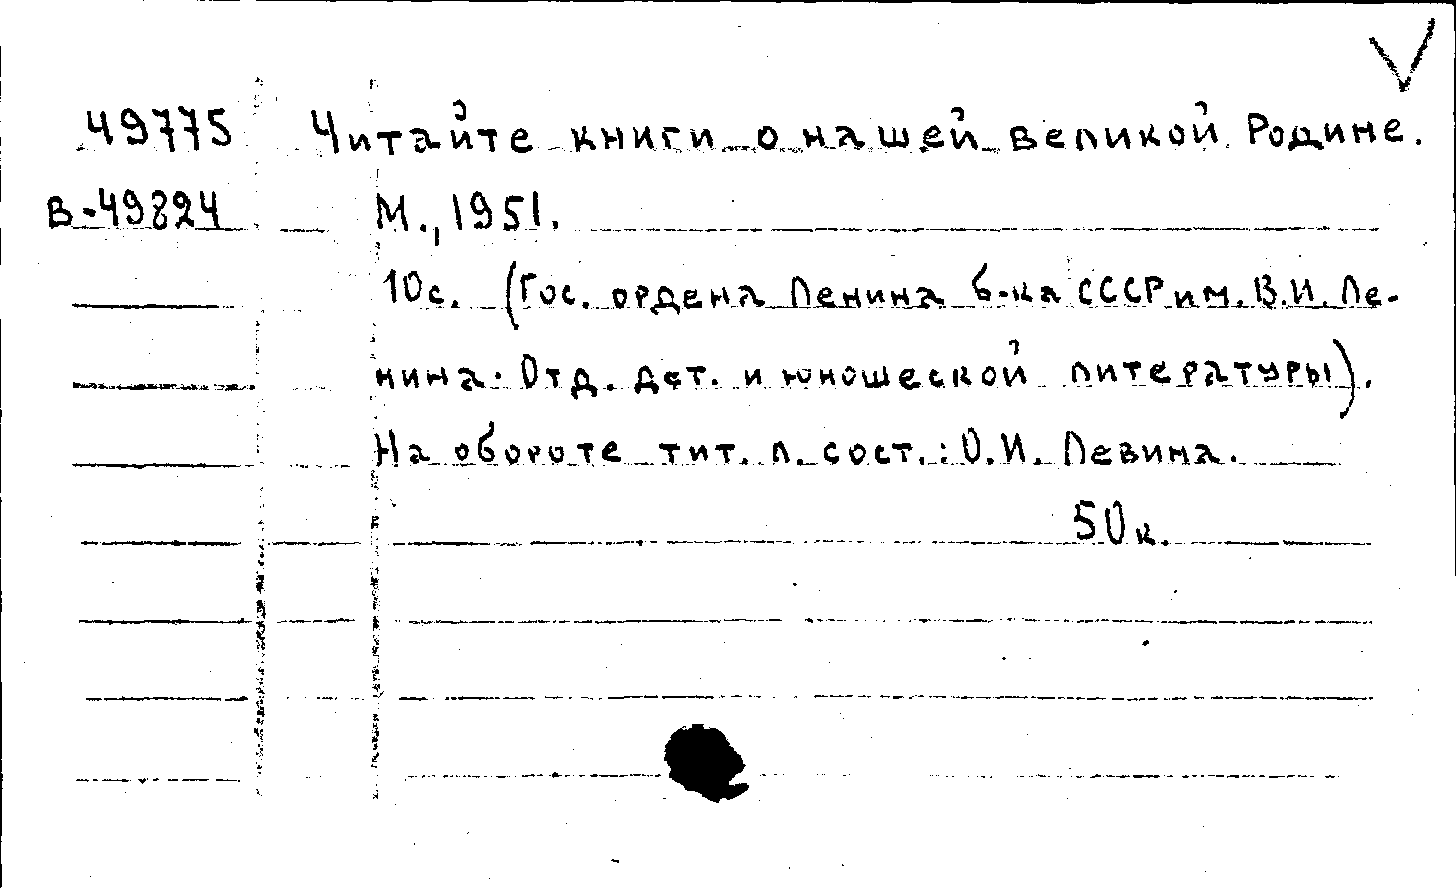 49775 Читайте книги о нашей великой Родине.
В-49824 М., 1951.
10с. (Гос. ордена Ленина б-ка СССР им. В.И. Ле-
нина. Отд. дет. и юношеской литературы).
На обороте тит. л. сост.: О.И. Левина.
50к.